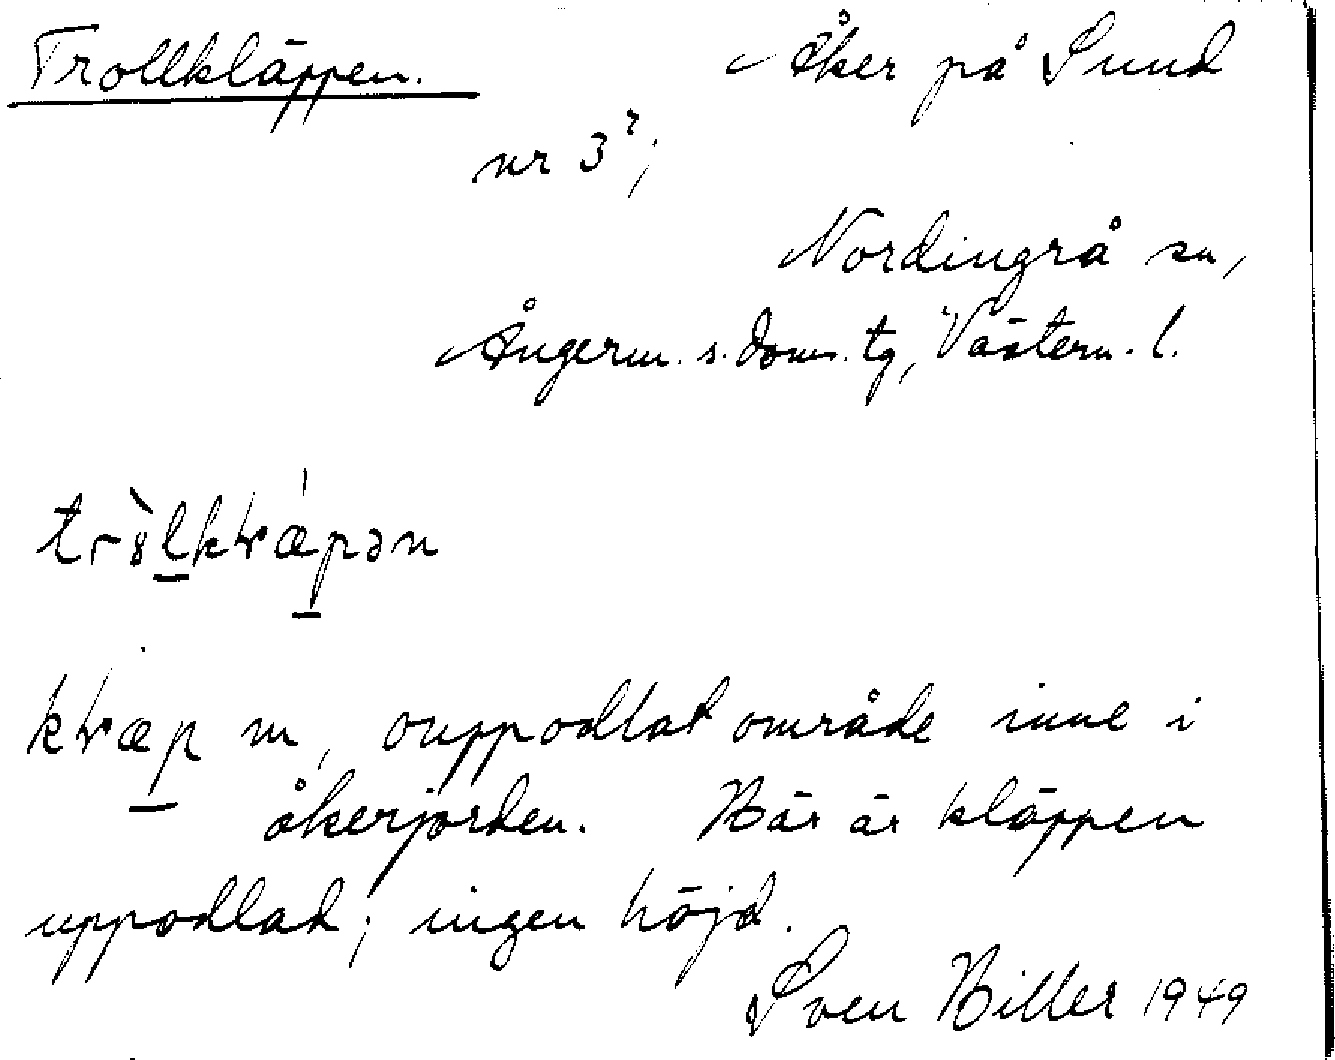 Trollkläppen. Åker på Sund
nr 3²;
Nordingrå sn,
Ångerm. s. doms. tg, Västern. l.
kvæp m, ouppodlat område inne i
åkerjorden. Här är kläppen
uppodlad; ingen höjd.
Sven Hiller 1949